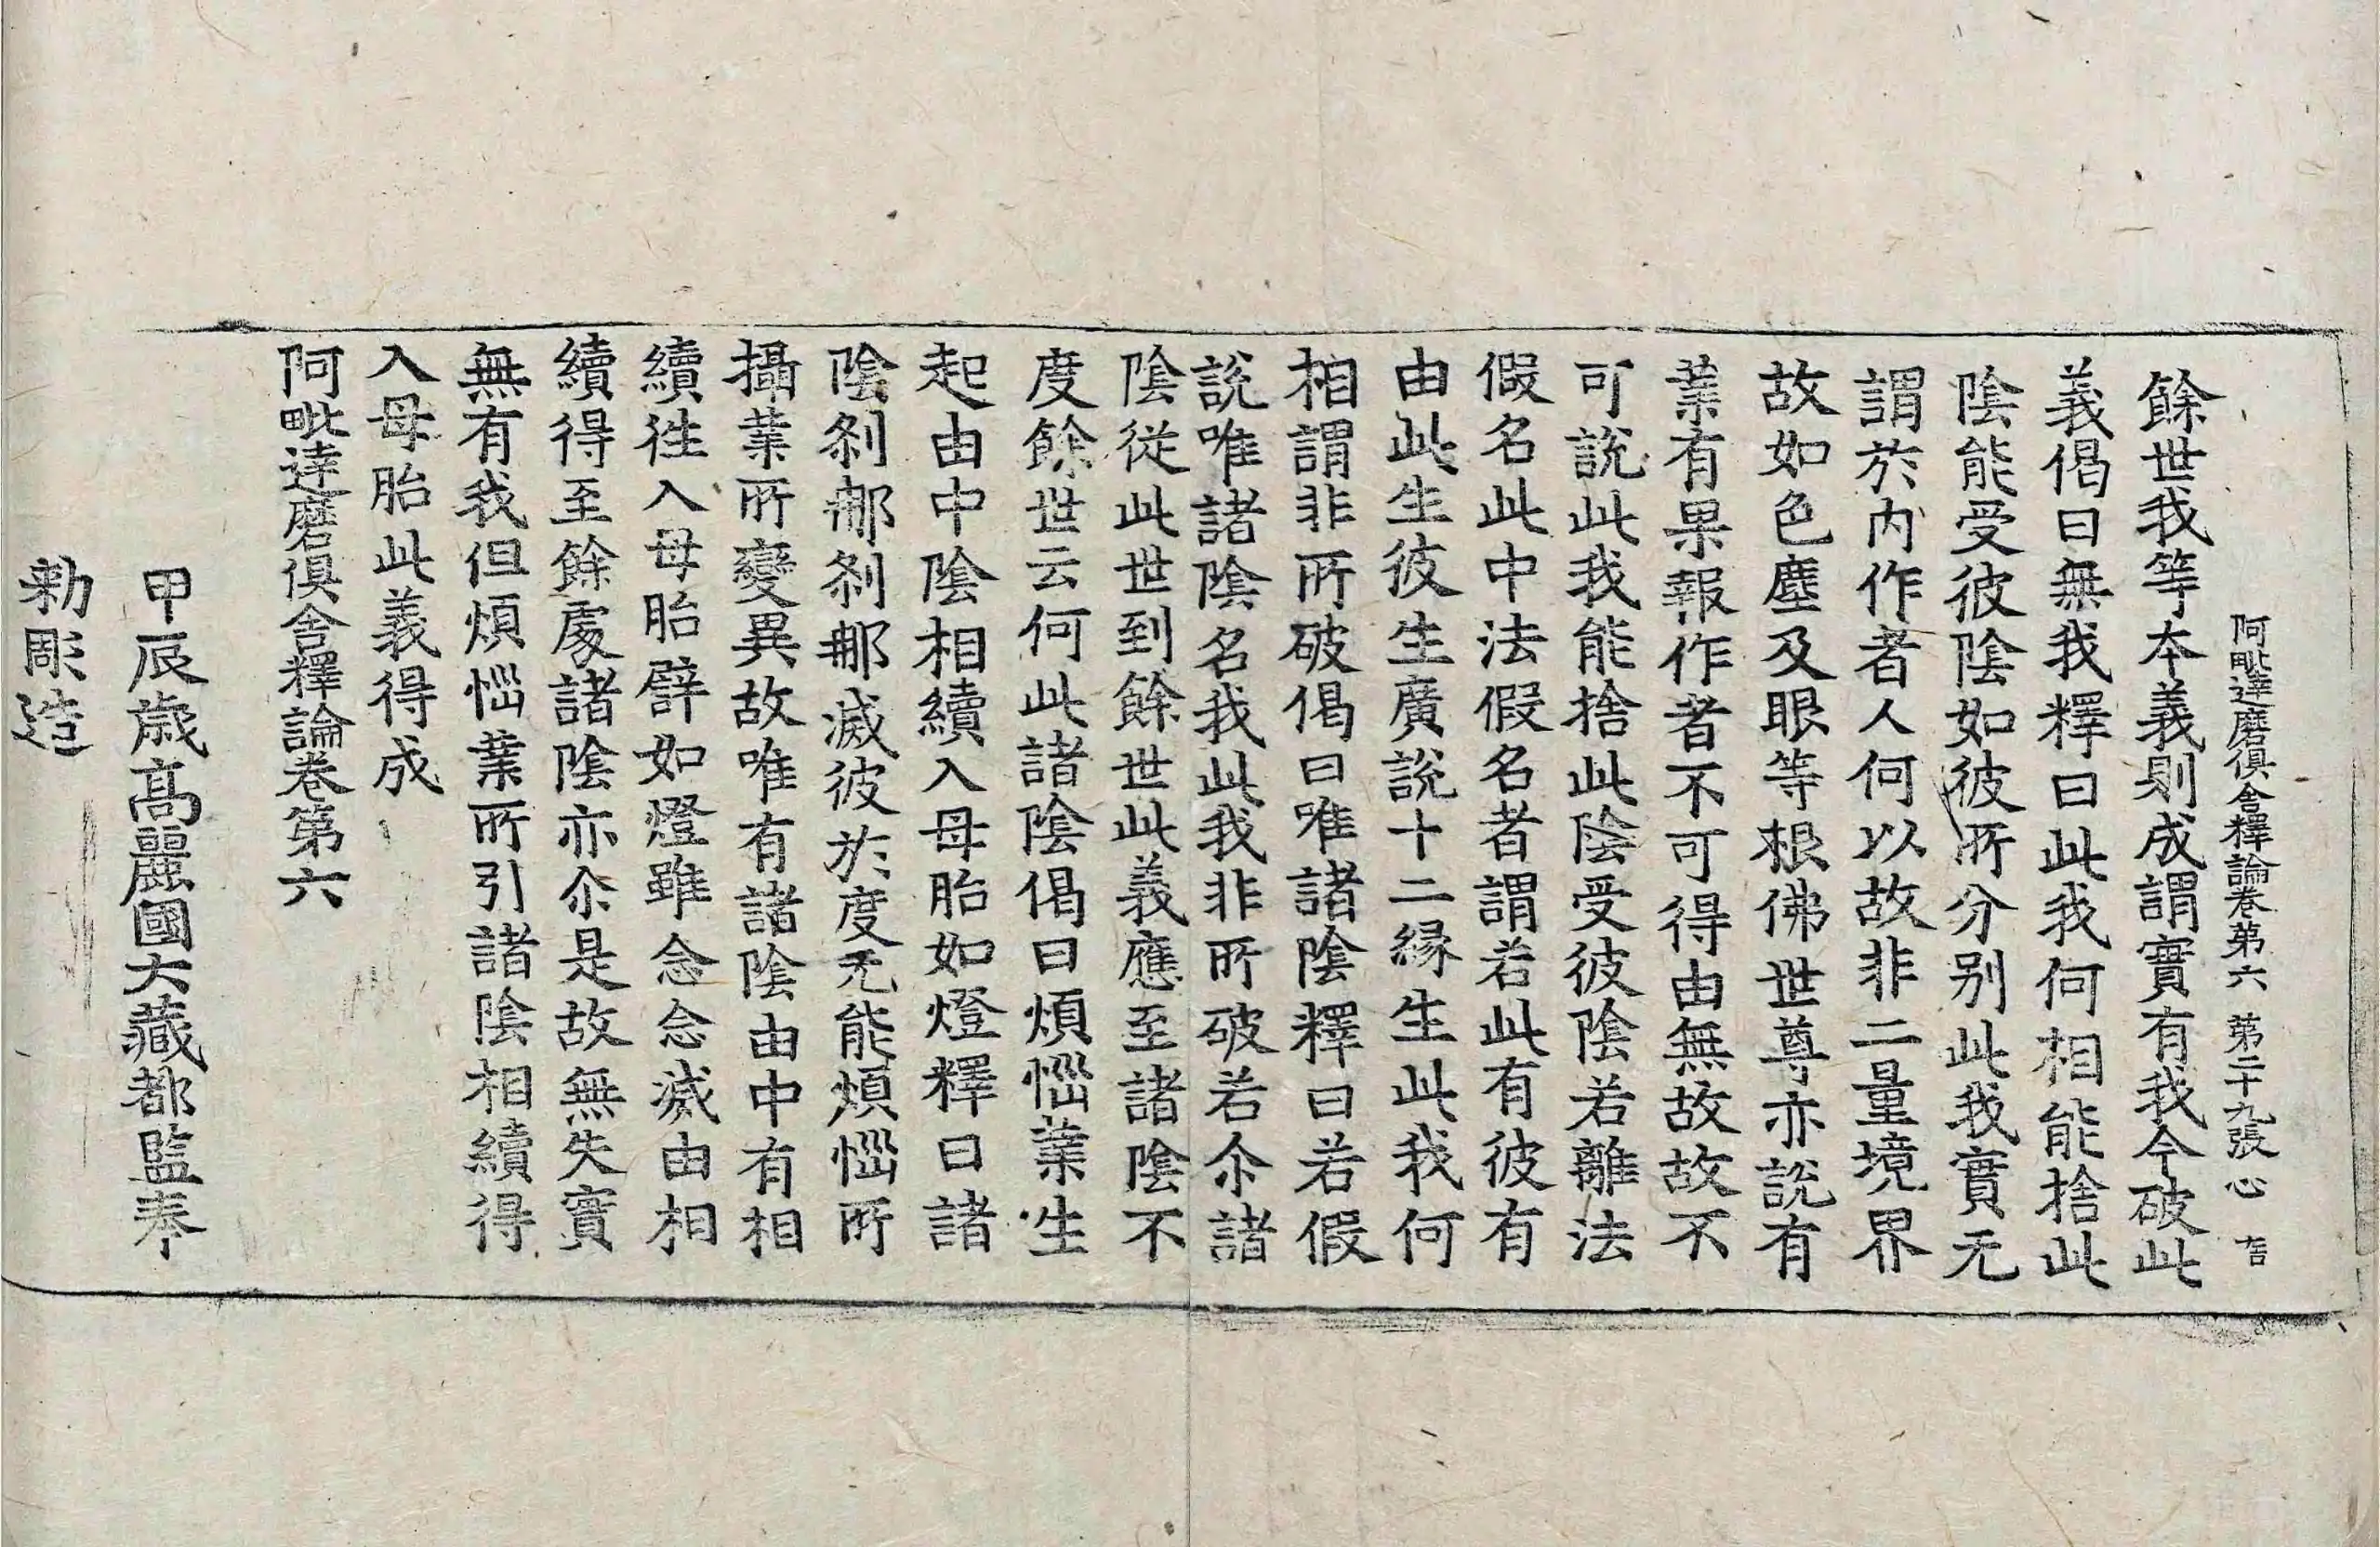 阿毗達磨俱舍釋論卷第六 第二十九張 心
餘世我等本義則成謂實有我今破此
義偈曰無我釋曰此我何相能捨此
陰能受彼陰如彼所分別此我實无
謂於内作者人何以故非二量境界
故如色塵及眼等根佛世尊亦說有
業有果報作者不可得由無故故不
可說此我能捨此陰受彼陰若離法
假名此中法假名者謂若此有彼有
由此生彼生廣說十二緣生此我何
相謂非所破偈曰唯諸陰釋曰若假
說唯諸陰名我此我非所破若尒諸
陰從此世到餘世此義應至諸陰不
度餘世云何此諸陰偈曰煩惱業生
起由中陰相續入母胎如燈釋曰諸
陰刹那刹那滅彼於度无能煩惱所
攝業所變異故唯有諸陰由中有相
續徃入母胎譬如燈雖念念滅由相
續得至餘處諸陰亦尒是故無失實
無有我但煩惱業所引諸陰相續得
入母胎此義得成
阿毗達磨俱舍釋論卷第六
甲辰歲高麗國大藏都監奉
勑彫造